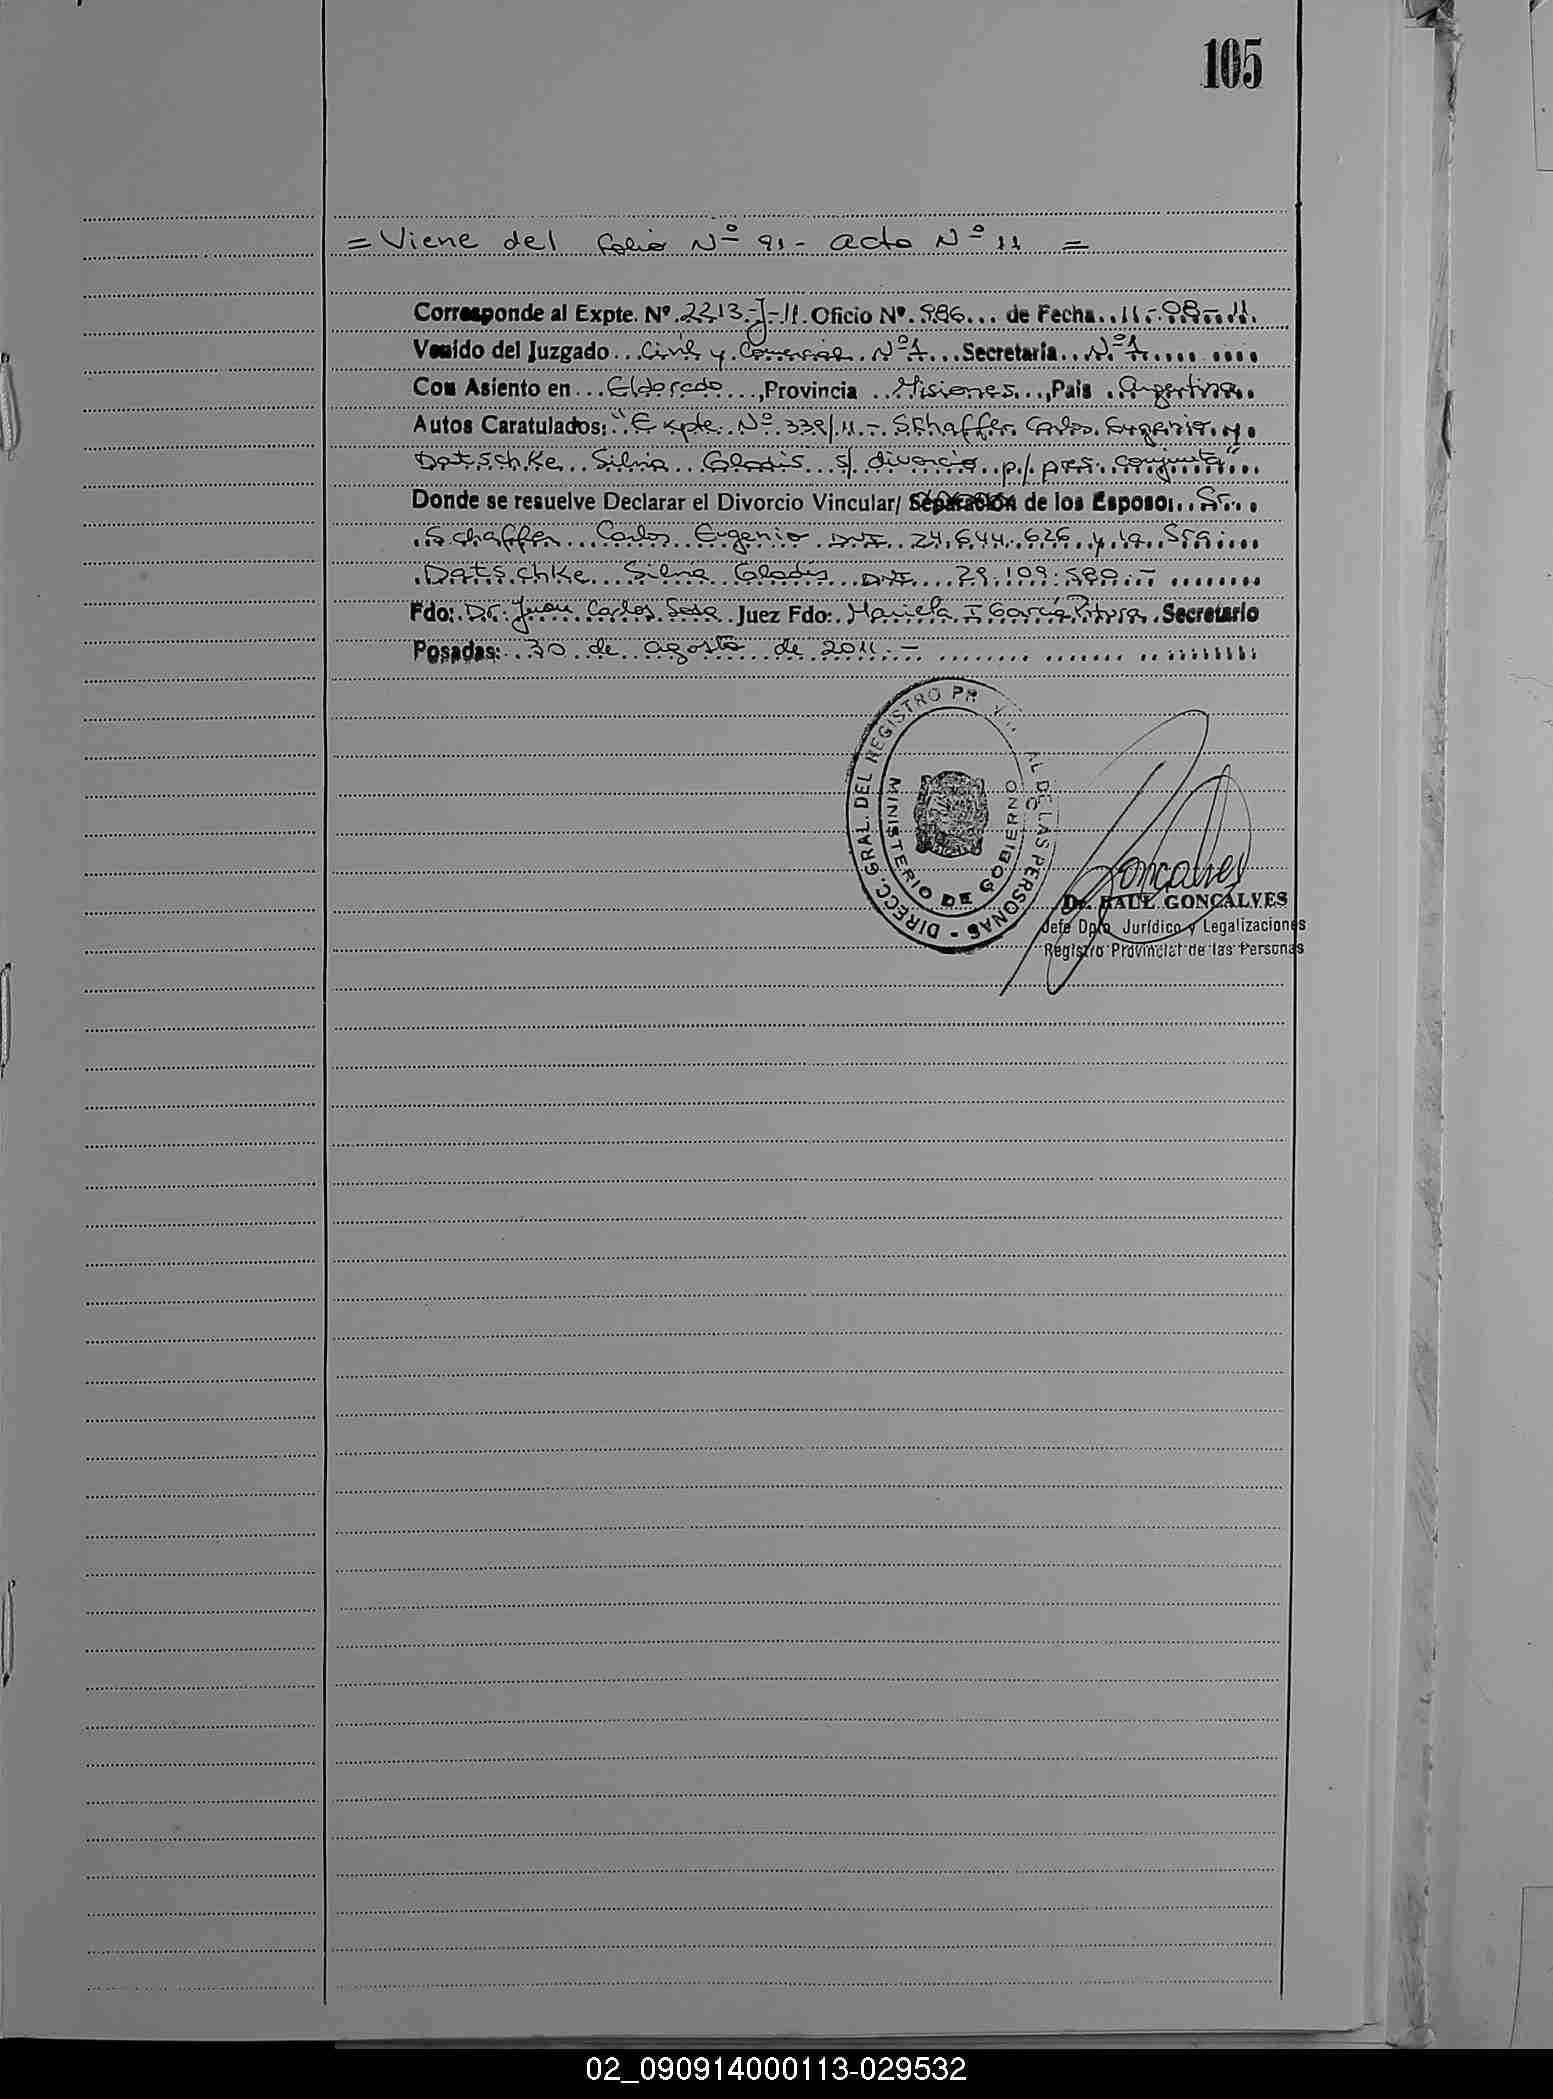 105
= Viene del folio Nº 91 - acta Nº 11 =
Corresponde al Expte. Nº 2213-J-11. Oficio Nº 986 de Fecha 11-08-11.
Venido del Juzgado Civil y Comercial Nº 1 Secretaria Nº 1
Con Asiento en Eldorado, Provincia Misiones, Pais Argentina
Autos Caratulados: "Expte. Nº 339/11 - Schaffer Carlos Eugenio y
Datschke Silvia Gladis s/ divorcio p/ pres. conjunta"
Donde se resuelve Declarar el Divorcio Vincular/ Separación de los Esposos Sr.
Schaffer Carlos Eugenio DNI 24.644.626 y la Sra.
Datschke Silvia Gladis DNI 29.109.580.-
Fdo: Dr. Juan Carlos Sosa Juez Fdo: Mariela I García Secretario
Posadas: 30 de agosto de 2011.-
DIRECC. GRAL. DEL REGISTRO PR AL DE LAS PERSONAS -
MINISTERIO DE GOBIERNO
Goncalves
Dr. RAUL GONCALVES
Jefe Dpto. Jurídico y Legalizaciones
Registro Provincial de las Personas
02_090914000113-029532